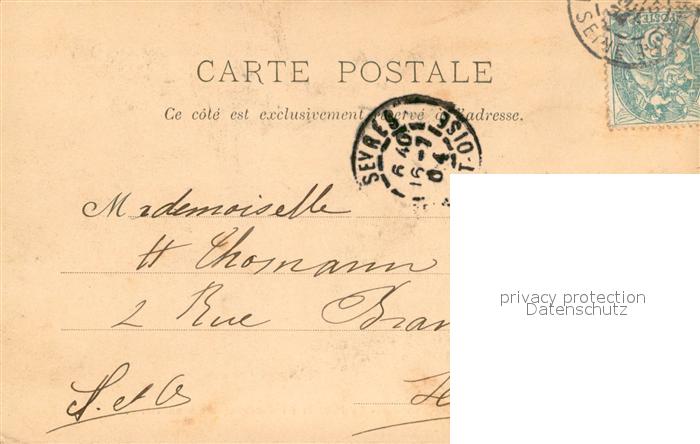 CARTE POSTALE
Ce côté est exclusivement réservé à l'adresse.
SEVRES S-ET-OISE
6 40
16 -7
04
Mademoiselle
H Thomann
2 Rue
S. et O.
privacy protection
Datenschutz